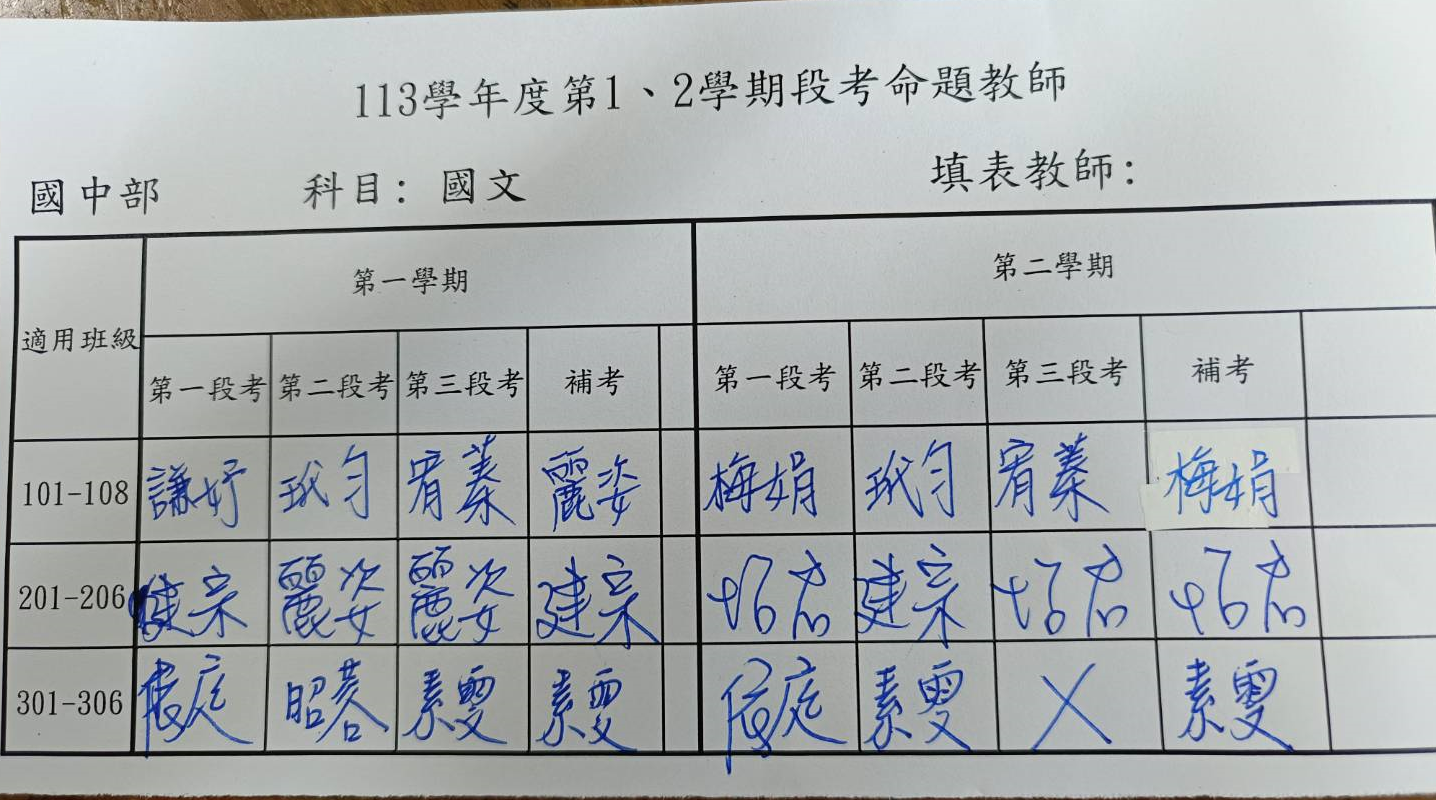 113學年度第1、2學期段考命題教師
國中部 科目：國文 填表教師：
適用班級 第一學期 第二學期
第一段考 第二段考 第三段考 補考 第一段考 第二段考 第三段考 補考
101-108 謙妤 玳勻 宥蓁 麗姿 梅娟 玳勻 宥蓁 梅娟
201-206 建宗 麗姿 麗姿 建宗 建宗
301-306 昭蓉 素雯 素雯 素雯 X 素雯